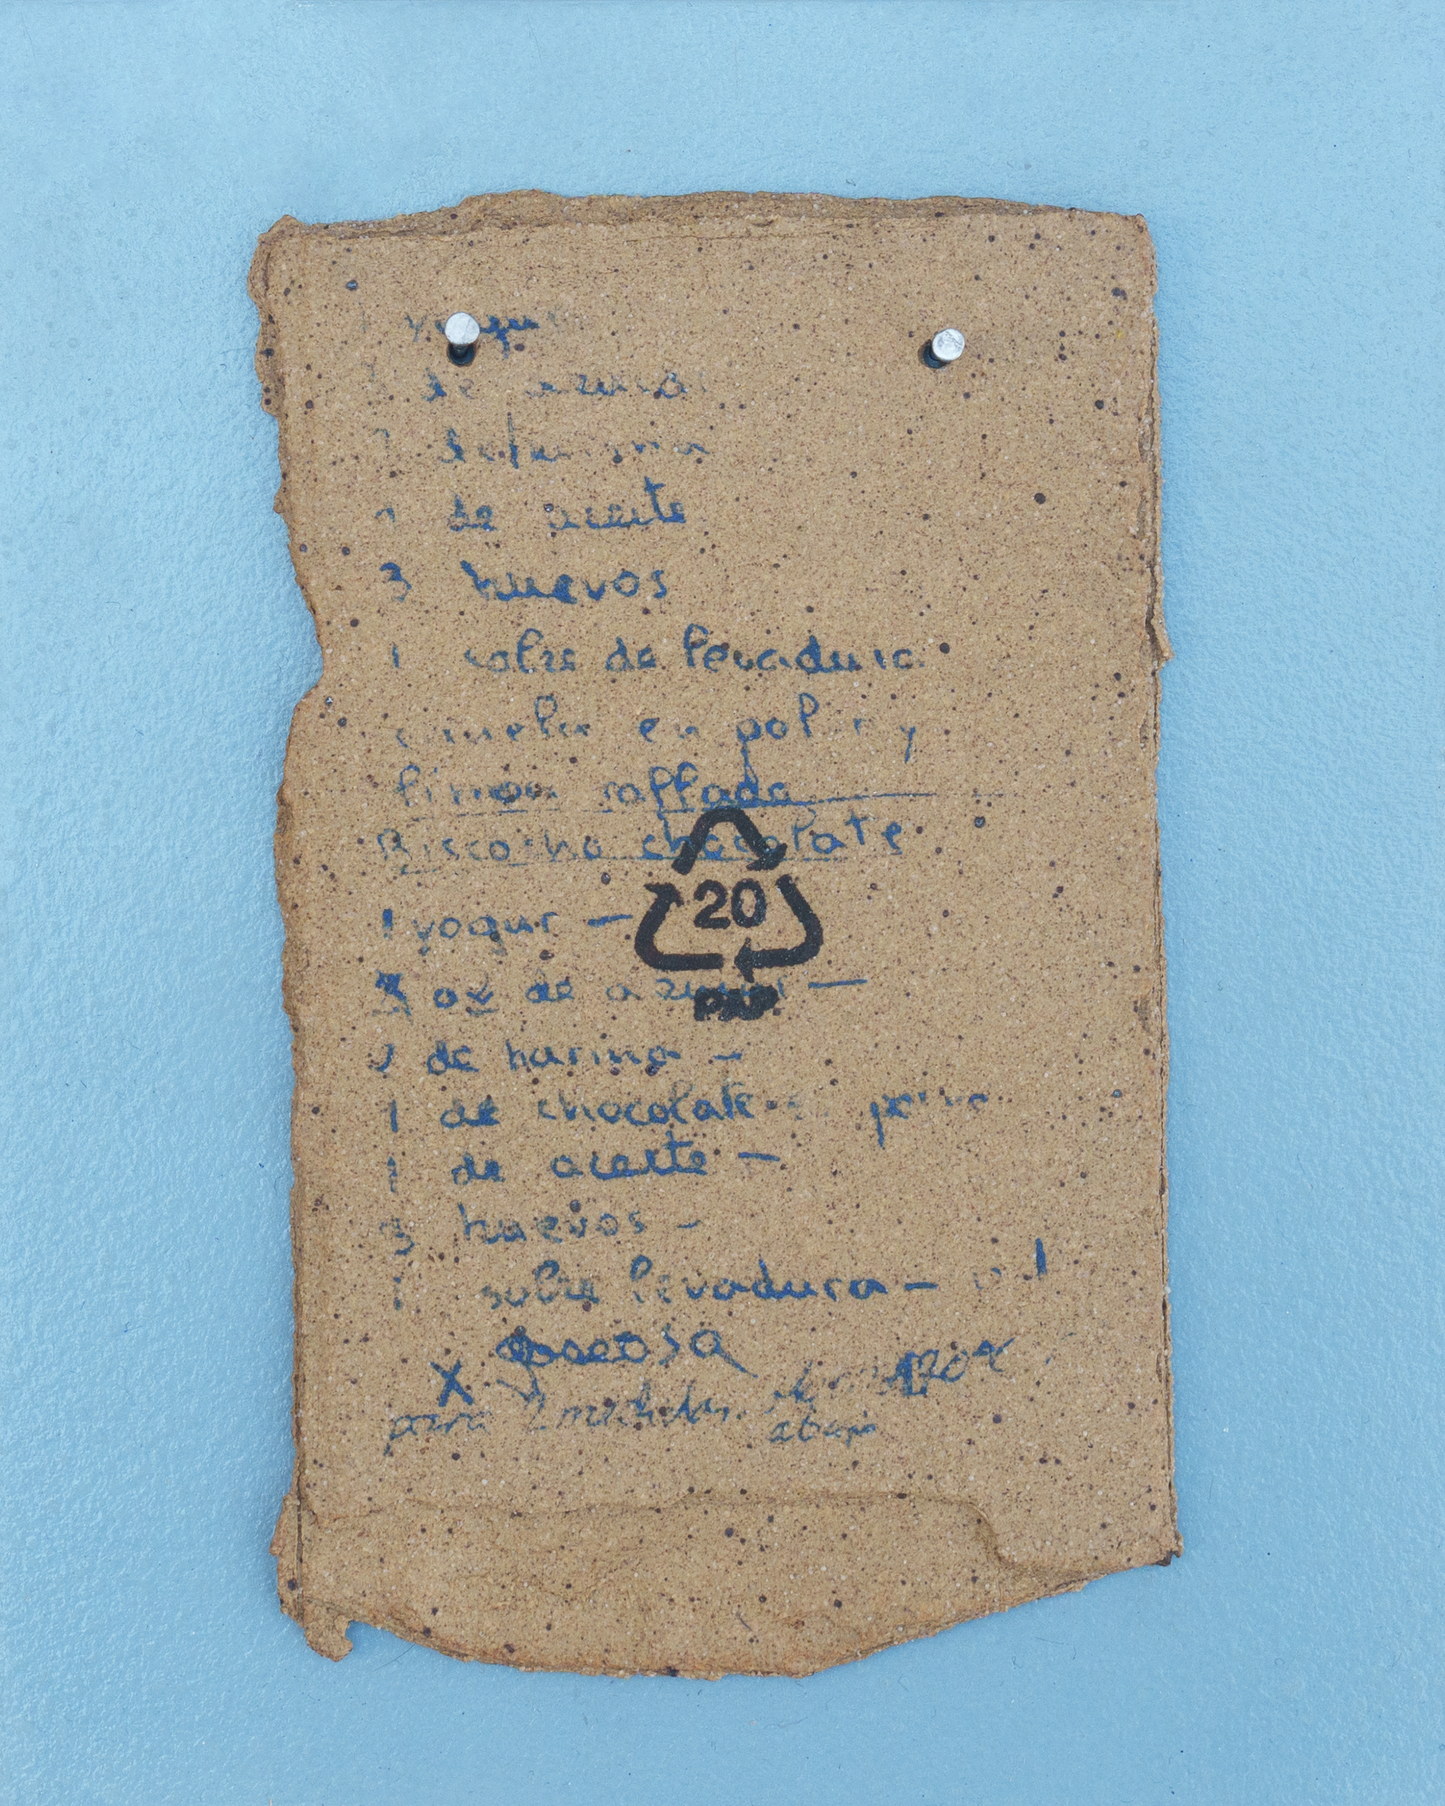 yogur
de azucar
de harina
de aceite
3 huevos
1 sobre de levadura
canela en polvo y
limon rallada
Biscocho chocolate
1 yogur —
3 oz de azucar —
2 de harina —
1 de chocolate polvo
1 de aceite —
3 huevos —
1 sobre levadura —
gaseosa
X
para 2 medidas
abajo
20
PAP